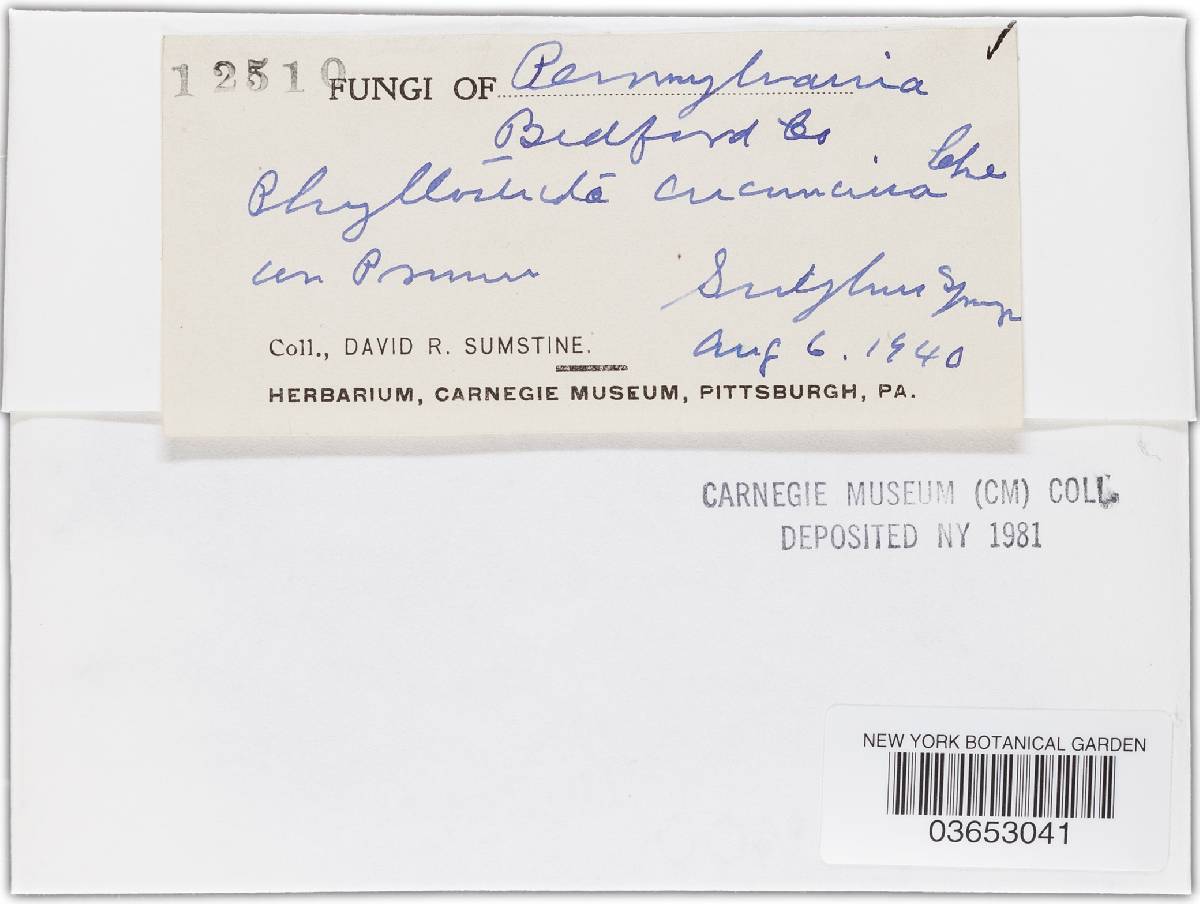 12510 FUNGI OF Pennsylvania
Bedford Co
Phyllosticta circumscissa Cke
on Prunus
Sulphur Springs
Coll., DAVID R. SUMSTINE. Aug 6. 1940
HERBARIUM, CARNEGIE MUSEUM, PITTSBURGH, PA.
CARNEGIE MUSEUM (CM) COLL.
DEPOSITED NY 1981
NEW YORK BOTANICAL GARDEN
03653041